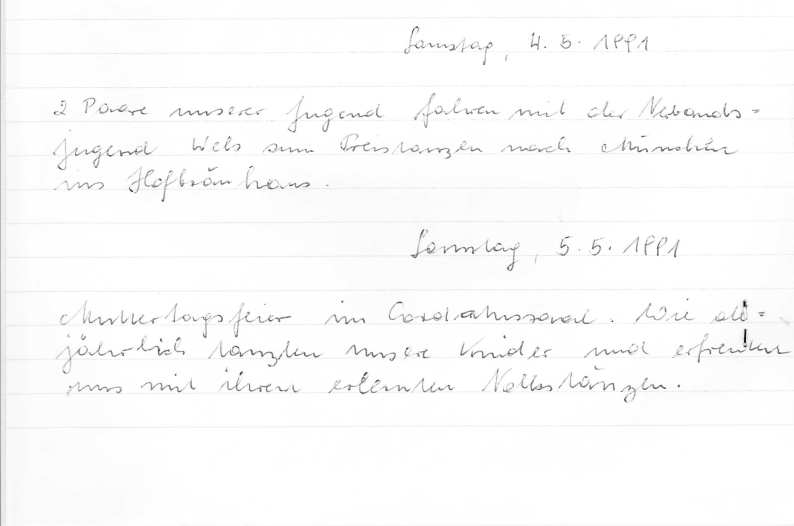 Samstag, 4. 5. 1991
2 Paare unserer Jugend fahren mit der Verbands=
jugend Wels zum Preistanzen nach München
ins Hofbräuhaus.
Samstag, 5. 5. 1991
Muttertagsfeier im Cordatussaal. Wie all=
jährlich tanzten unsere Kinder und erfreuten
uns mit ihren erlernten Volkstänzen.